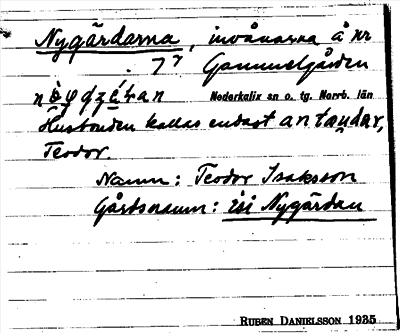 Nygårdarna, invånarna å nr
7⁷ Gammelgården
Nederkalix sn o. tg. Norrb. län
Husbonden kallas endast antɑudar,
Teodor.
Namn: Teodor Isaksson
Gårdsnamn: isi Nygårdan
RUBEN DANIELSSON 1935